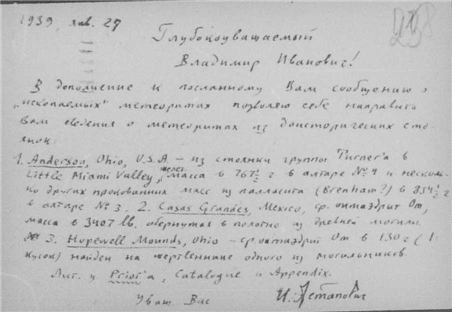 1939. янв. 27
Глубокоуважаемый
Владимир Иванович!
В дополнение к посланному Вам сообщению о
„ископаемых" метеоритах позволяю себе направить
Вам сведения о метеоритах из доисторических сто-
янок:
1. Anderson, Ohio, U.S.A — из стоянки группы Turner'а в
Little Miami Valley, желез. масса в 767½ г в алтаре № 4 и несколь-
ко других прокованных масс из палласита (Brenham?) в 834½ г
в алтаре № 3. 2. Casas Grandes, Mexico, ср. октаэдрит Om,
масса в 3407 lb. обернутая в полотно из древней могилы.
№ 3. Hopewell Mounds, Ohio — ср. октаэдрит Om в 130 г (1
кусок) найден на жертвеннике одного из могильников
Лит. у Prior'а, Catalogue и Appendix.
Уваж Вас
И. Астапович